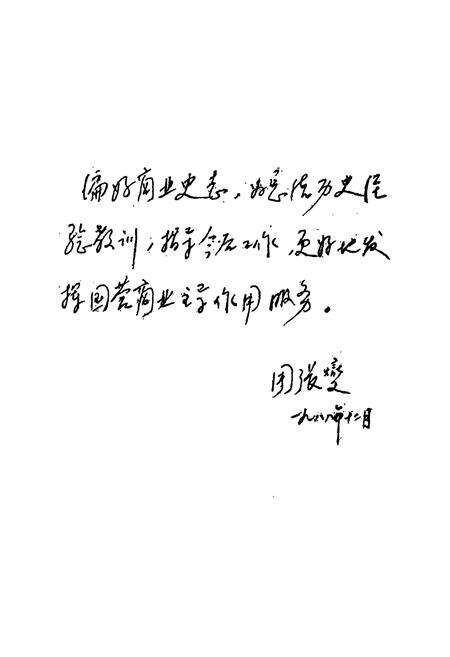 编好商业史志，好总结历史经
验教训，指导今后工作，更好地发
挥国营商业主导作用服务。
周张燮
一九八八年十二月